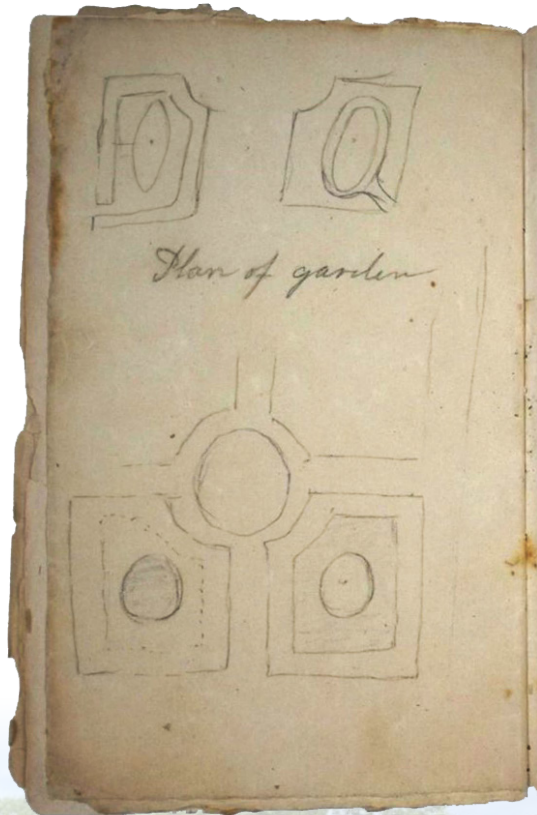 Plan of garden